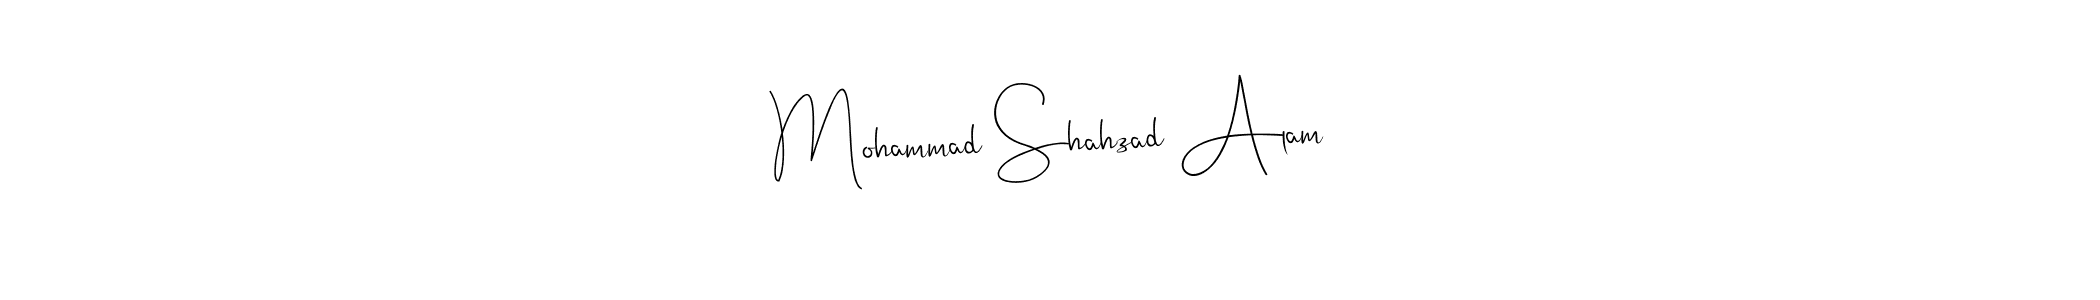 Mohammad Shahzad Alam